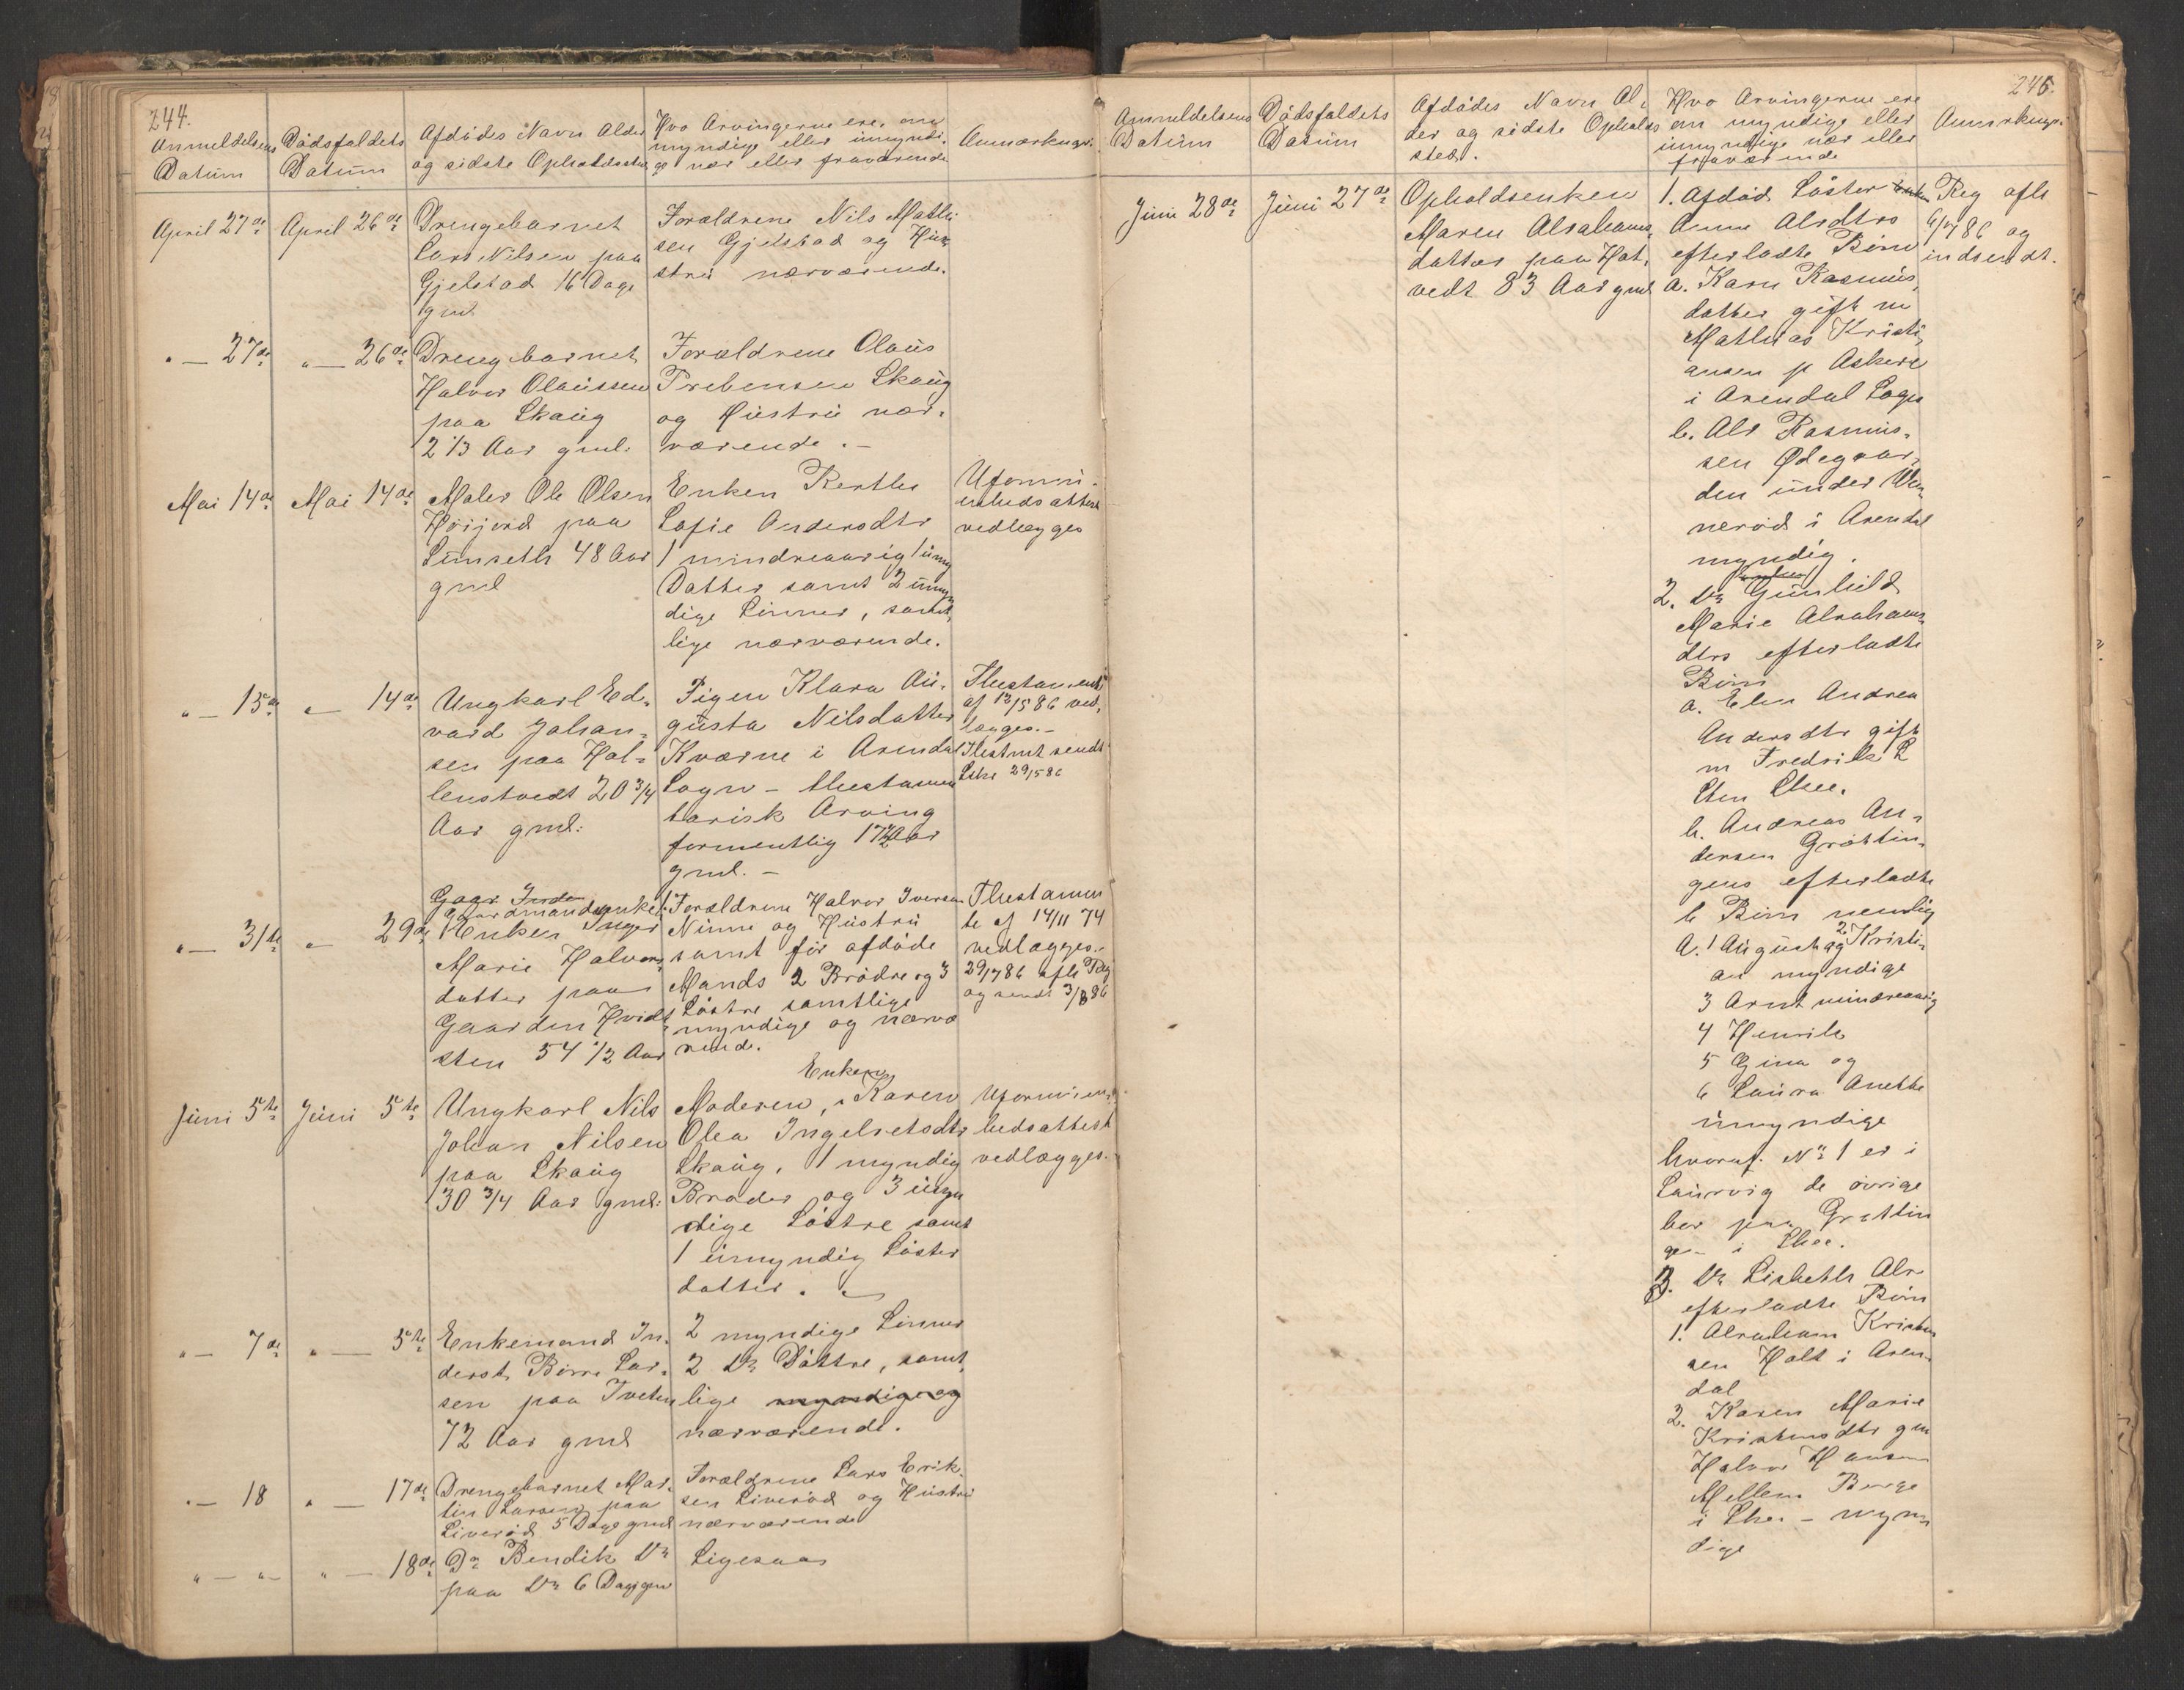 244.
Anmeldelsens Datum
Dødsfaldets Datum
Afdødes Navn Alder
og sidste Opholdssted
Hvo Arvingerne ere, om
myndige eller umyndi-
ge nær eller fraværende
Anmærkngr.
April 27de
April 26de
Drengebarnet
Lars Nilsen paa
Gjelstad 16 Dage
gml
Forældrene Nils Mathi
sen Gjelstad og Hu-
stru nærværende.
" — 27de
" — 26de
Drengebarnet
Halvor Olaussen
paa Skaug
2 1/3 Aar gml.
Forældrene Olaus
Prebensen Skaug
og Hustru nær-
værende. —
Mai 14de
Mai 14de
Maler Ole Olsen
Høijord paa
Sumseth 48 Aar
gml
Enken Berthe
Sofie Andersdtr
1 mindreaarig 1 umy
Datter samt 2 umyn
dige Sønner, samt
lige nærværende.
Uformu-
enhedsattest
vedlægges
" — 15de
" — 14de
Ungkarl Ed-
vard Johan-
sen paa Hal-
lenstvedt 20 3/4
Aar gml:
Pigen Klara Au-
gusta Nilsdatter
Kværne i Arendal
Sogn – thestamen
tarisk Arving
formentlig 17 1/2 Aar
gml. —
Thestament
af 13/5 86 ved-
lægges. —
Thestmt sendt
Skr 29/5 86
" — 31te
" — 29de
Gaardmandsenke
Enken Inger
Marie Halvors-
datter paa
Gaarden Hvidt
sten 54 1/2 Aar
Forældrene Halvor Iversen
Ninne og Hustru
samt før afdøde
Mands 2 Brødre og 3
Søstre samtlige
myndige og nærvæ
rende.
Thestamen
te af 14/11 74
vedlægges. —
29/7 86 afh Reg
og sendt 3/8 86
Juni 5te
Juni 5te
Ungkarl Nils
Johan Nilsen
paa Skaug
30 3/4 Aar gml:
Enken
Moderen, Karen
Olea Ingebretsdtr
Skaug, 1 myndig
Broder og 3 umyn
dige Søstre samt
1 umyndig Søster
datter.
Uformuen-
hedsattest
vedlægges.
" — 7de
" — 5te
Enkemand In-
derst Børre Lar-
sen paa Tveten
72 Aar gml
2 myndige Sønner
2 Do Døttre, samt
lige myndige og
nærværende.
" — 18
" — 17de
Drengebarnet Mar-
tin Larsen paa
Liverød 5 Dage gml
Forældrene Lars Erik-
sen Liverød og Hustru
nærværende
" — " —
" — 18de
Do Bendik Do
paa Do 6 Dage gm
Ligesaa
245.
Anmeldelsens
Datum
Dødsfaldets
Datum
Afdødes Navn Al-
der og sidste Opholds
sted.
Hvo Arvingerne ere
om myndige eller
umyndige nær eller
fraværende
Anmrkngr.
Juni 28de
Juni 27de
Opholdsenken
Maren Abrahams-
datter paa Hot-
vedt 83 Aar gml
1. Afdød Søster
Anne Absdtrs
efterladte Børn
a. Karn Rasmus-
datter gift m
Mathias Kristi-
ansen p Askere
i Arendal Sogn
b. Abr Rasmus-
sen Ødegaar-
den under
nerød i Arendal
myndig.
2. Do Gunhild
Marie Abrahams-
dtrs efterladte
Børn
a. Elen Andrea
Andersdtr gift
m Fredrik L
b. Andreas An-
dersen Grøttin-
gens efterladte
6 Børn nemlig
A. 1 August og 2 Kristi-
an myndige
3 Arnt mindreaarig
4 Henrik
5 Gina og
6 Laura Anette
umyndige
hvoraf No 1 er i
Laurvig de øvrige
bor paa Grøttin
gen i
3. Do Lisbeth Abr
efterladte Børn
1. Abraham Kristen
sen Holt i Aren-
dal
2. Karen Marie
Kristensdtr gm
Halvor Hansen
Mellem Berge
i – myn
dige
Reg afh
6/7 86 og
indsendt.